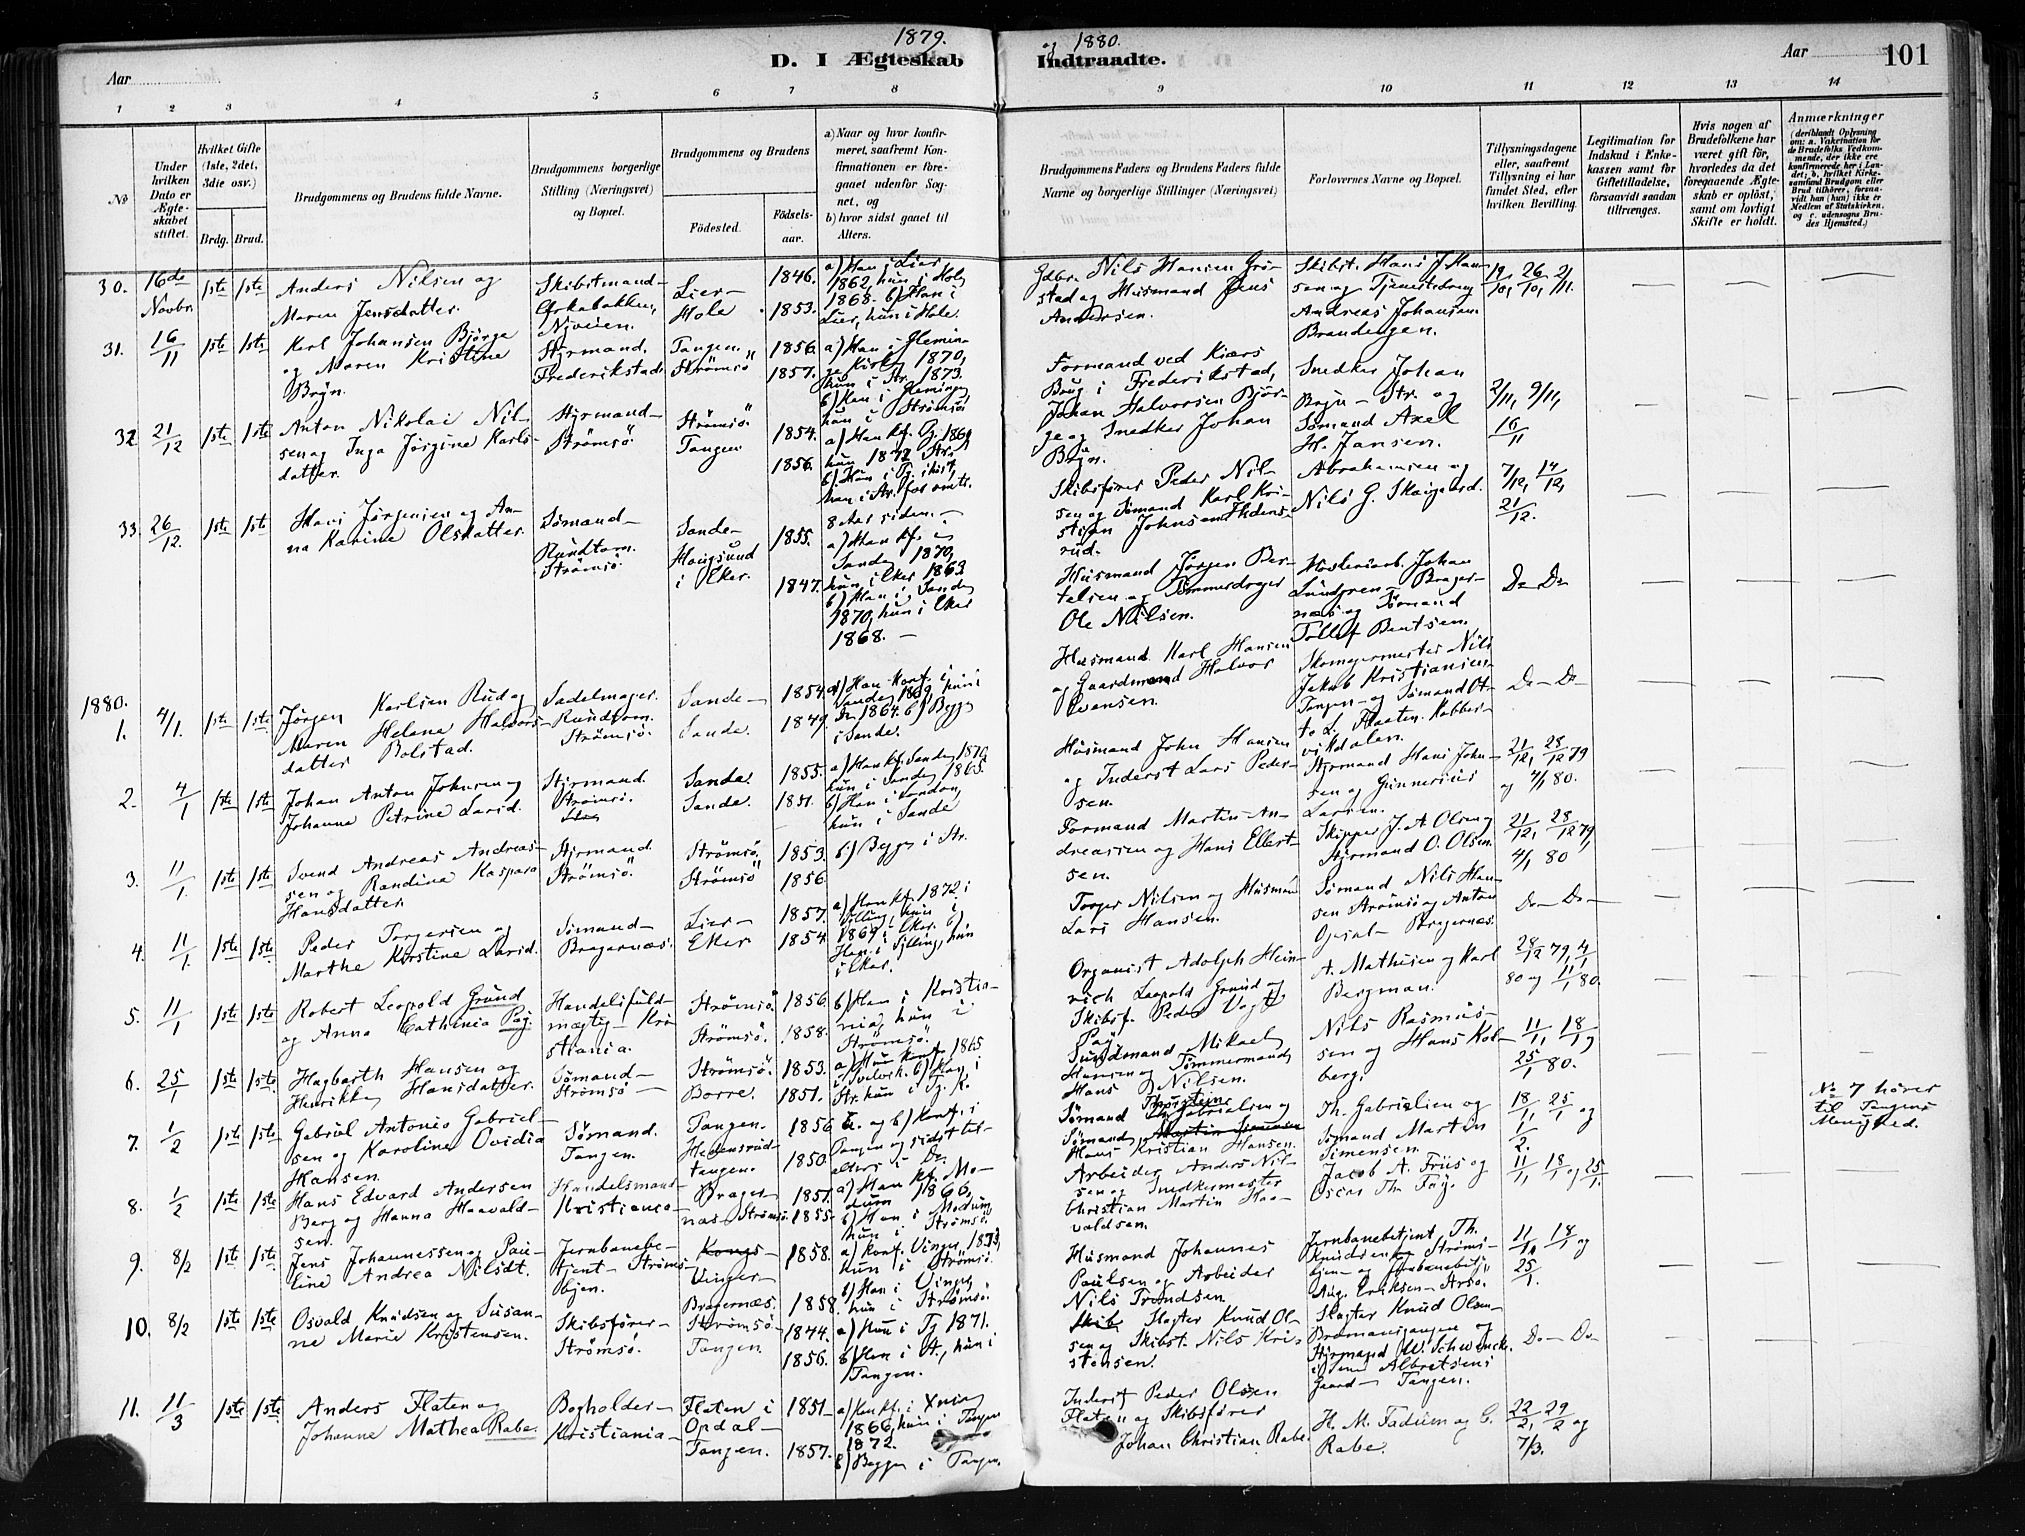 1879. og 1880.
Aar
D. I Ægteskab Indtraadte.
Aar
101
1 2 3 4 5 6 7 8 9 10 11 12 13 14
No
Under hvilken Dato er Ægteskabet stiftet.
Hvilket Gifte (1ste, 2det, 3die osv.)
Brdg. Brud.
Brudgommens og Brudens fulde Navne.
Brudgommens borgerlige Stilling (Næringsvei) og Bopæl.
Brudgommens og Brudens
Fødested.
Fødselsaar.
a) Naar og hvor konfirmeret, saafremt Konfirmationen er foregaaet udenfor Sognet, og
b) hvor sidst gaaet til Alters.
Brudgommens Faders og Brudens Faders fulde Navne og borgerlige Stillinger (Næringsvei)
Forlovernes Navne og Bopæl.
Tillysningsdagene eller, saafremt Tillysning ei har fundet Sted, efter hvilken Bevilling.
Legitimation for Indskud i Enkekassen samt for Giftetilladelse, forsaavidt saadan tiltrænges.
Hvis nogen af Brudefolkene har været gift før, hvorledes da det foregaaende Ægteskab er opløst, samt om lovligt Skifte er holdt.
Anmærkninger
(deriblandt Oplysning om: a. Vakcination for de Brudefolks Vedkommende, der ikke ere konfirmerede her i Landet; b. hvilket Kirkesamfund Brudgom eller Brud tilhører, forsaavidt han (hun) ikke er Medlem af Statskirken, og c. udensogns Brudes Hjemsted.)
30. 16de Novbr. 1ste 1ste
Anders Nilsen og
Maren Jensdatter.
Skibstmand
Nyveien.
Lier— 1846.
Hole 1853.
a) Han i Lier
1862, hun i Hole
1868. b) Han i
Lier, hun i Hole.
Gdbr. Nils Hansen Grøstad og Husmand Jens
Andersen.
Skibst. Hans J. Hansen og Tjenestedreng
Andreas Johansen
Brandengen.
19/10, 26/10, 2/11.
31. 16/11 1ste 1ste
Karl Johansen Bjørge
og Maren Kristine
Bryn.
Styrmand.
Frederikstad.
Tangen. 1856.
Strømsö 1857.
a) Han i Glemminge Kirke 1870,
hun i Str. 1873.
b) Han i Glemminge
hun i Strømsö
Formand ved Kiærs
Brug i Frederikstad,
Johan Halvorsen Bjørge og Snedker Johan
Bryn.
Snedker Johan
Bryn - Str. og
Sømand Axel
H. Jansen.
2/11, 9/11,
16/11
32 21/12 1ste 1ste
Anton Nikolai Nilsen og Inga Jørgine Karlsdatter.
Styrmand—
Strømsö
Strømsö. 1854.
Tangen 1856.
a) Han kf. Tg. 1869
hun 1872 Str.
b) Han i Tg. sidst,
hun i Str. for omtr.
8 Aar siden.—
Skibsfører Peder Nilsen og Sømand Karl Kristian Johnsen
Abrahamsen og
Nils G. Skaugaard.
7/12, 14/12,
21/12.
33. 26/12. 1ste 1ste
Hans Jørgensen og Anna Karine Olsdatter.
Sømand—
Rundtom.
Strømsö.
Sande— 1855.
Hougsund
i Eker. 1847.
a) Han kf. i
Sande 1870,
hun i Eker 1863
b) Han i Sande
1870, hun i Eker
1868.—
Husmand Jørgen Bertelsen og Tømmerdreger
Ole Nilsen.
Johan
Lundgren - Bragernæs og Sømand
Tollef Bentsen.
Do Do
1880.
1. 4/1. 1ste 1ste
Jørgen Karlsen Rud og
Maren Helene Halvorsdatter Bolstad.
Sadelmager.
Rundtom.
Strømsö.
Sande— 1854.
Sande. 1849.
a) Han konf. i
Sande 1869, hun i
Do 1864. b) Begge
i Sande.
Husmand Karl Hansen
og Gaardmand Halvor
Evensen.
Skomagermester Nils
Jakob Kristiansen
Tangen— og Sømand Otto L. Flaaten. Kobbervikdalen.
Do— Do—
2. 4/1 1ste 1ste
Johan Anton Johnsen og
Johanne Petrine Larsd.
Styrmand
Strømsö.
Sande. 1855.
Sande. 1851.
a) Han kf. Sande 1870,
hun i Sande 1865.
b) Han i London,
hun i Sande
Husmand John Hansen
og Inderst Lars Pedersen.
Styrmand Hans Johnsen og Gunnerius
Larsen.
21/12, 28/12 79
og 4/1 80.
3. 11/1 1ste 1ste
Svend Andreas Andreassen og Randine Kaspara
Hansdatter
Styrmand
Strømsö.
Strømsö. 1853.
Strømsö 1856.
b) Begge i Str.
Formand Martin Andreassen og Hans Ellertsen.
Skipper J. A. Olsen og
Styrmand O. Olsen.
21/12, 28/12 79,
4/1 80
4. 11/1. 1ste 1ste
Peder Torgersen og
Marthe Kirstine Larsd.
Sømand—
Bragernæs.
Lier— 1857.
Eker 1854.
a) Han kf. 1872 i
Sylling, hun
1869 i Eker. b)
Han i Sylling, hun
i Eker.
Torger Nilsen og Husmand
Lars Hansen.
Sømand Nils Hansen Strömsö og Anton
Opsal— Bragernæs.
Do— Do—
5. 11/1 1ste 1ste
Robert Leopold Grund
og Anna Cathinia Paj.
Handelsfuldmægtig— Kristiania.
Strømsö 1856.
Strømsö. 1858.
b) Han i Kristiania, hun i
Strømsö.
Organist Adolph Heinrich Leopold Grund og
Skibsf. Peder Vogt
Paj.
A. Mathisen og Karl
Bergman.
28/12 79, 4/1
80 og 11/1 80.
6. 25/1 1ste 1ste
Hagbarth Hansen og
Henrikke Hansdatter.
Sømand—
Strømsö—
Strømsö. 1853.
Borre. 1851.
1865
i Svelvik. b) Han i
Str. hun i Tg. K.
Mikael
Hansen og Tømmermand
Hans Nilsen.
Nils Rasmussen og Hans Kolberg.
11/1, 18/1 og
25/1 80.
7. 1/2 1ste 1ste
Gabriel Antonio Gabrielsen og Karoline Ovidia
Hansen.
Sømand.
Tangen.
Tangen. 1856
Hedensrudtangen. 1850.
a. og b) Konf. i
Tangen og sidst til
alters i Do.
Sømand Thorstein
Gabrielsen og
Sømand
Hans Kristian Hansen.
Th. Gabrielsen og
Sømand Martin
Simensen.
18/1, 25/1 og
1/2.
No 7 hører
til Tangens
Menighed.
8. 1/2 1ste 1ste
Hans Edvard Andersen
Berg og Hanna Haavaldsen.
Handelsmand—
Kristiania—
Bragernæs 1851.
Strømsö. 1855.
a) Han kf. Modum 1866,
b) Han i Modum,
hun i Strømsö.
Arbeider Anders Nilsen og Snedkermester
Christian Martin Haavaldsen.
Jacob A. Friis og
Oscar Th. Fay.
11/1, 18/1 og 25/1.
9. 8/2 1ste 1ste
Jens Johannessen og Pauline Andrea Nilsdt.
Jernbanebetjent— Strømsöbyen.
Vinger— 1858.
Bragernæs. 1858.
a) Konf. Vinger 1873,
hun i Strømsö.
b) Han i Vinger,
hun i Strømsö.
Husmand Johannes
Paulsen og Arbeider
Nils Trondsen.
Jernbanebetjent Th.
Knudsen Strømsöbyen— og Jernbanebetj.
Aug. Eriksen—
11/1, 18/1 og
25/1.
10. 8/2 1ste 1ste
Osvald Knudsen og Susanne Marie Kristensen.
Skibsfører—
Strømsö.
Strømsö— 1874.
Tangen. 1856.
a) Hun i Tg 1871.
b) Han i St., hun i
Tangen.
Slagter Knud Olsen og Skibst. Nils Kristensen.
Slagter Knud Olsen—
og
Styrmand W. Schwencke
i Albretsens
Gaard— Tangen.
Do— Do—
11. 11/3 1ste 1ste
Anders Flaten og
Johanne Mathea Rabe.
Bogholder—
Kristiania—
Flaten i
Opdal— 1851—
Tangen. 1857.
a) Han kf. i Xnia
1866, hun i Tangen
1872.
b) Begge i Tangen.
Inderst Peder Olsen
Flaten og Skibsfører
Johan Christian Rabe.
H. M. Fadum og C.
Rabe.
22/2, 29/2 og
7/3.